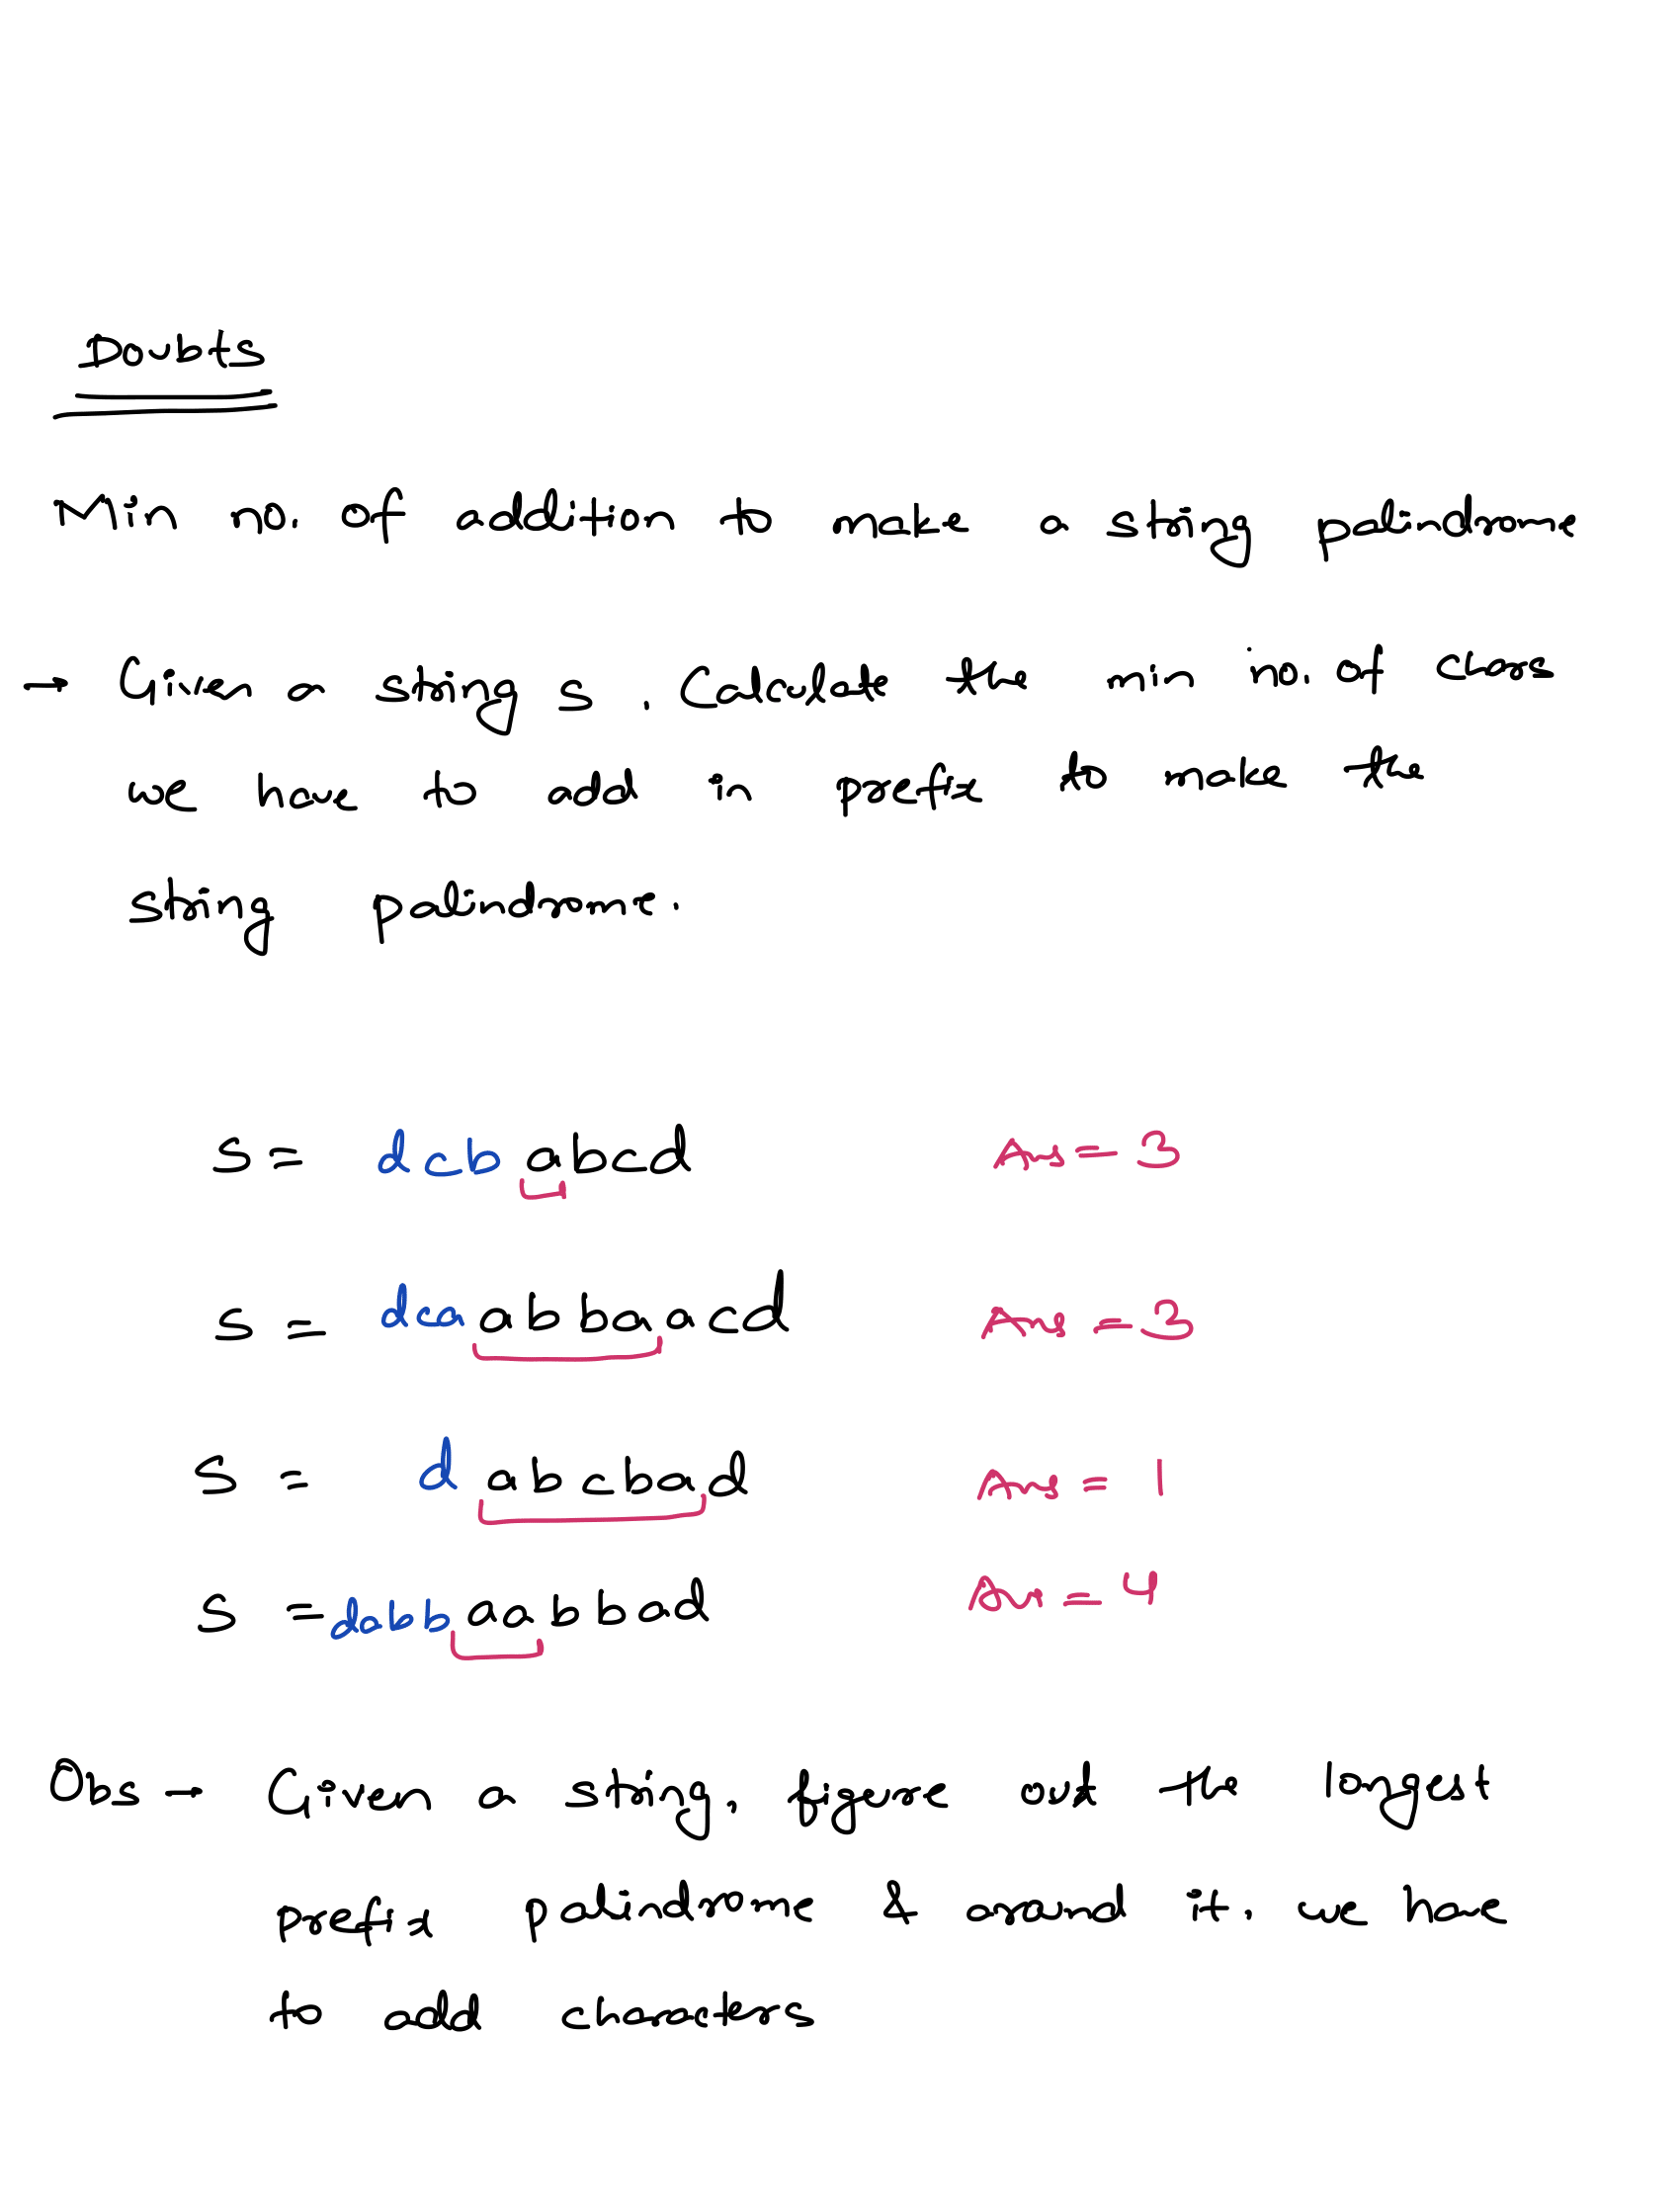 Doubts
Min no. of addition to make a string palindrome
→ Given a string s . Calculate the min no. of chars
we have to add in prefix to make the
string palindrome.
s = dcb abcd Ans = 3
s = dca abbaacd Ans = 3
s = d abcbad Ans = 1
s = dabb aabbad Ans = 4
Obs → Given a string, figure out the longest
prefix palindrome & around it. we have
to add characters